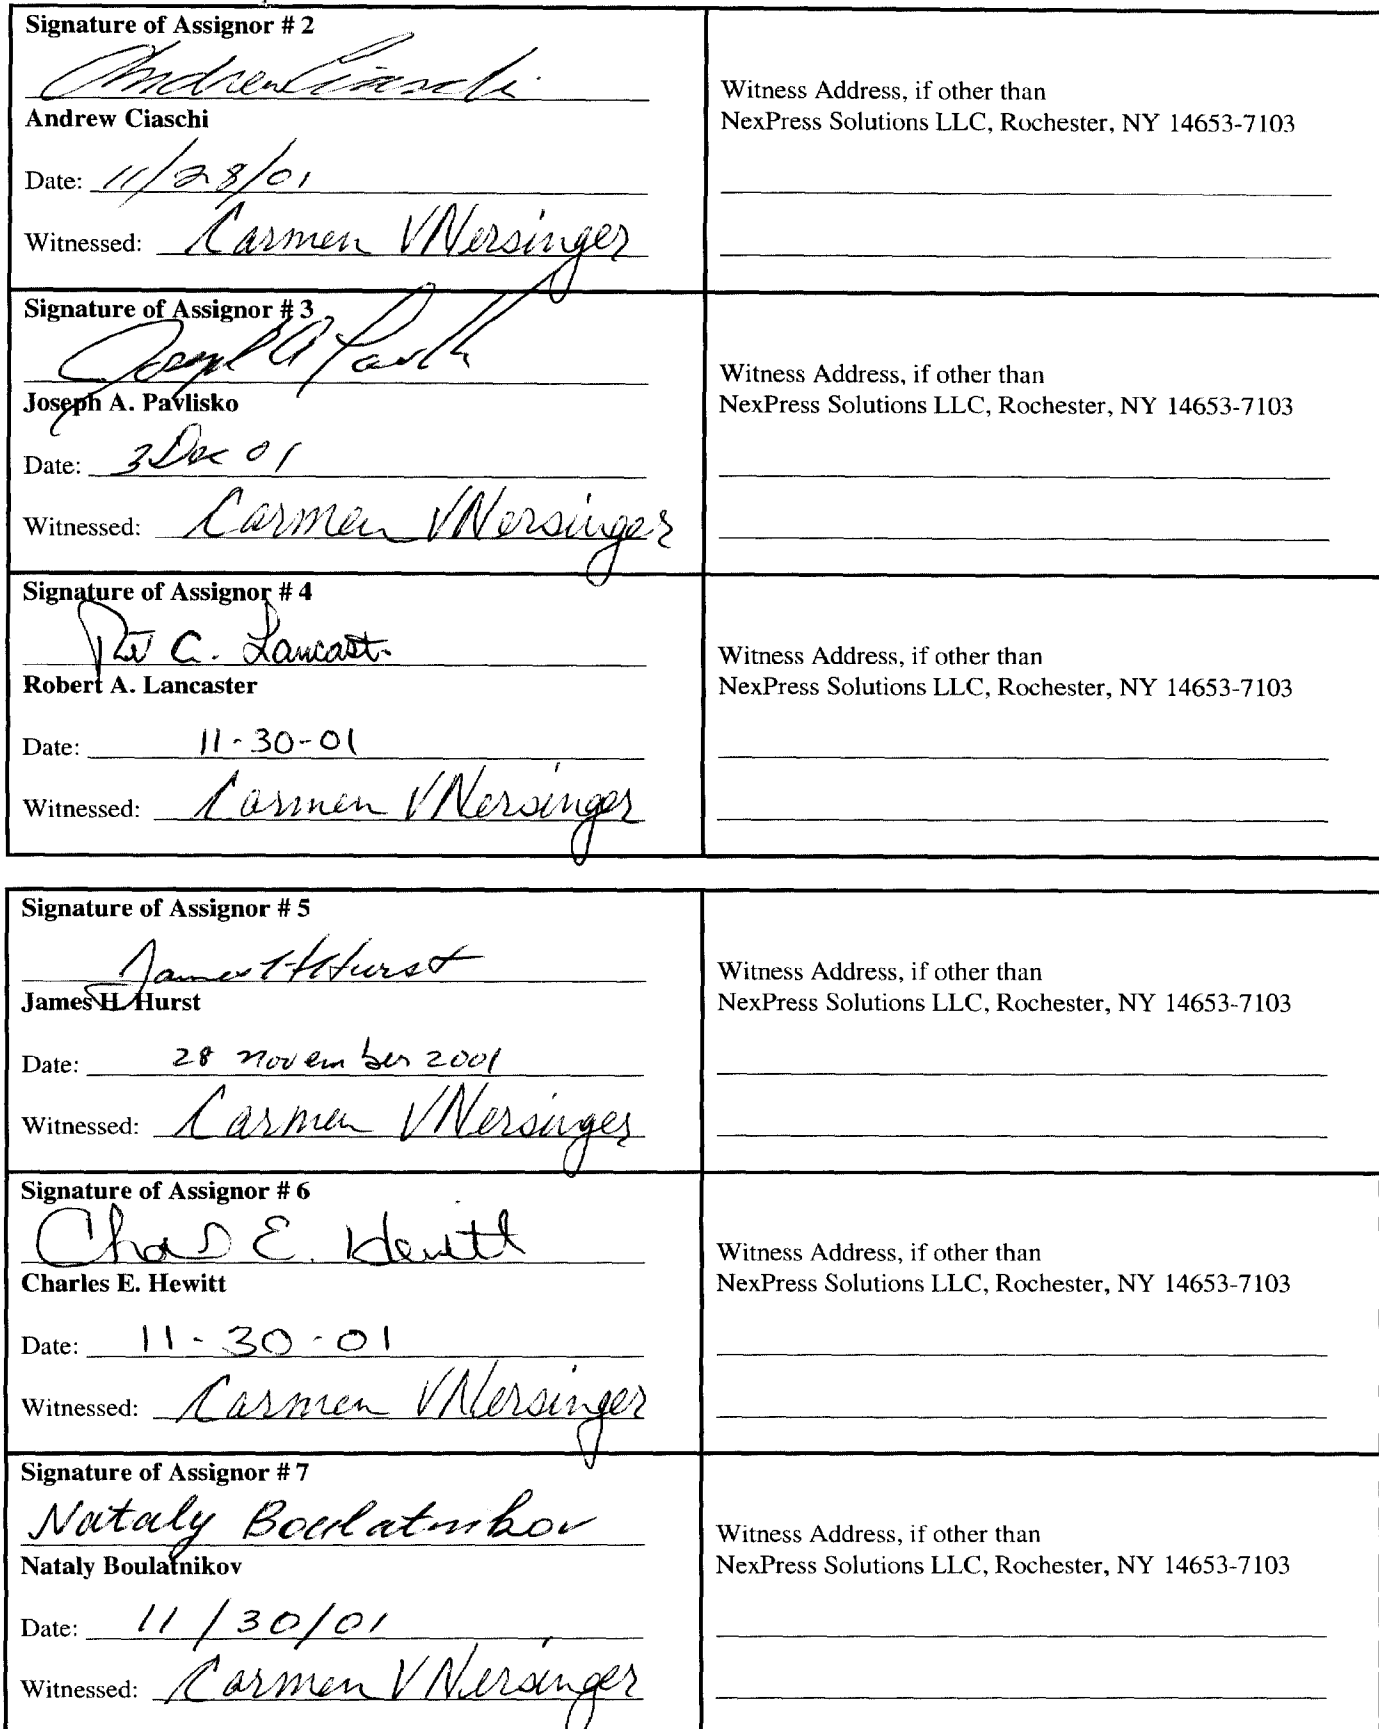 Signature of Assignor # 2
Andrew Ciaschi
Andrew Ciaschi
Date: 11/28/01
Witnessed: Carmen V Nersinger
Witness Address, if other than
NexPress Solutions LLC, Rochester, NY 14653-7103
Signature of Assignor # 3
Joseph A Pavlisko
Joseph A. Pavlisko
Date: 3 Dec 01
Witnessed: Carmen V Nersinger
Witness Address, if other than
NexPress Solutions LLC, Rochester, NY 14653-7103
Signature of Assignor # 4
Robert A. Lancaster
Robert A. Lancaster
Date: 11-30-01
Witnessed: Carmen V Nersinger
Witness Address, if other than
NexPress Solutions LLC, Rochester, NY 14653-7103
Signature of Assignor # 5
James H Hurst
James H. Hurst
Date: 28 November 2001
Witnessed: Carmen V Nersinger
Witness Address, if other than
NexPress Solutions LLC, Rochester, NY 14653-7103
Signature of Assignor # 6
Chas E. Hewitt
Charles E. Hewitt
Date: 11-30-01
Witnessed: Carmen V Nersinger
Witness Address, if other than
NexPress Solutions LLC, Rochester, NY 14653-7103
Signature of Assignor # 7
Nataly Boulatnikov
Nataly Boulatnikov
Date: 11/30/01
Witnessed: Carmen V Nersinger
Witness Address, if other than
NexPress Solutions LLC, Rochester, NY 14653-7103